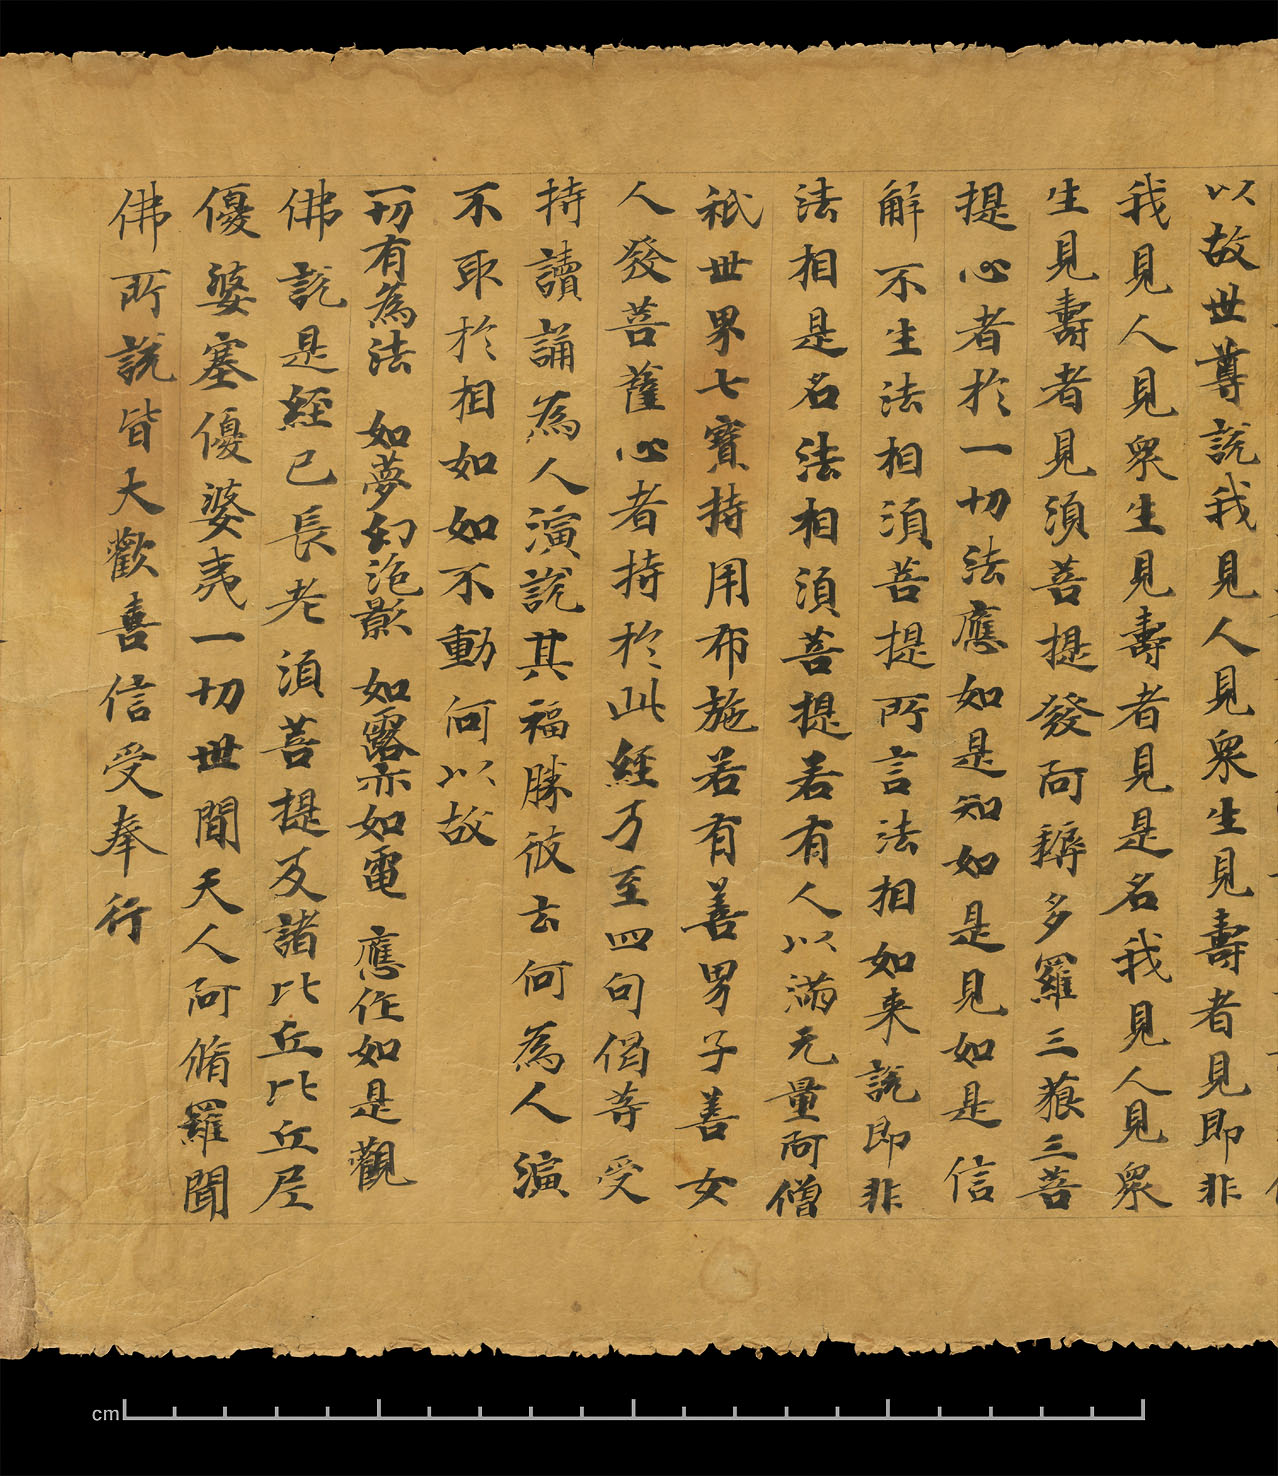 以故世尊說我見人見衆生見壽者見即非
我見人見衆生見壽者見是名我見人見衆
生見壽者見湏菩提發阿耨多羅三藐三菩
提心者於一切法應如是知如是見如是信
解不生法相湏菩提所言法相如来說即非
法相是名法相湏菩提若有人以滿无量阿僧
祇世界七寳持用布施若有善男子善女
人發菩薩心者持於此經乃至四句偈等受
持讀誦為人演說其福勝彼云何為人演
不取於相如如不動何以故
一切有為法 如夢幻泡影 如露亦如電 應作如是觀
佛說是經已長老湏菩提及諸比丘比丘尼
優婆塞優婆夷一切世間天人阿脩羅聞
佛所說皆大歡喜信受奉行
cm